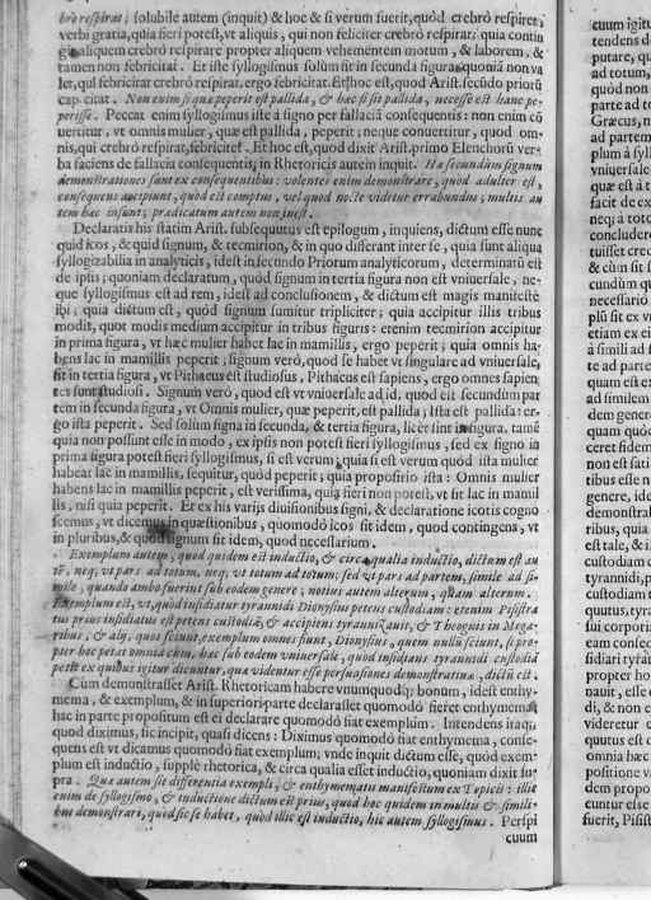 bro respirat; solubile autem (inquit) & hoc & si verum fuerit, quòd crebrò respiret;
verbi gratia, quia fieri potest, vt aliquis, qui non feliciter crebrò respirari quia contin
git aliquem crebrò respirare propter aliquem vehementem motum, & laborem, &
tamen non febricitat. Et iste syllogismus solùm fit in secunda figura, quoniã non va
let, qui febricitat crebrò respirat, ergo febricitat. Et hoc est, quod Arist. secũdo priorũ
cap. citat. Non enim si quæ peperit est pallida, & hæc si sit pallida, necesse est hanc pe-
perisse. Peccat enim syllogismus iste à signo per fallaciã consequentis: non enim cõ
uertitur, vt omnis mulier, quæ est pallida, peperit; neque conuertitur, quòd om-
nis, qui crebrò respirat, febricitet. Et hoc est, quod dixit Arist. primo Elenchorũ ver-
ba faciens de fallacia consequentis; in Rhetoricis autem inquit. Hæ secundùm signum
demonstrationes sunt ex consequentibus: volentes enim demonstrare, quòd adulter est,
consequens accipiunt, quòd est comptus, vel quòd nocte videtur errabundus; multis au
tem hæc insunt; prædicatum autem non inest.
Declaratis his statim Arist. subsequutus est epilogum, inquiens, dictum esse nunc
quid icos, & quid signum, & tecmirion, & in quo differant inter se, quia sunt aliqua
syllogizabilia in analyticis, idest in secundo Priorum analyticorum, determinatũ est
de ipsis; quoniam declaratum, quòd signum in tertia figura non est vniuersale, ne-
que syllogismus est ad rem, idest ad conclusionem, & dictum est magis manifestè
ibi; quia dictum est, quòd signum sumitur tripliciter; quia accipitur illis tribus
modis, quot modis medium accipitur in tribus figuris: etenim tecmirion accipitur
in prima figura, vt hæc mulier habet lac in mamillis, ergo peperit; quia omnis ha-
bens lac in mamillis peperit; signum verò, quod se habet vt singulare ad vniuersale,
fit in tertia figura, vt Pithacus est studiosus, Pithacus est sapiens, ergo omnes sapien
tes sunt studiosi. Signum verò, quod est vt vniuersale ad id, quod est secundùm par
tem in secunda figura, vt Omnis mulier, quæ peperit, est pallida; Ista est pallida: er-
go ista peperit. Sed solùm signa in secunda, & tertia figura, licèt sint in figura, tamẽ
quia non possunt esse in modo, ex ipsis non potest fieri syllogismus, sed ex signo in
prima figura potest fieri syllogismus, si est verum; quia si est verum quòd ista mulier
habeat lac in mamillis, sequitur, quòd peperit; quia propositio ista: Omnis mulier
habens lac in mamillis peperit, est verissima, quia fieri non potest, vt sit lac in mamil
lis, nisi quia peperit. Et ex his varijs diuisionibus signi, & declaratione icotis cogno
scemus, vt dicemus in quæstionibus, quomodò icos sit idem, quod contingens, vt
in pluribus, & quod signum sit idem, quod necessarium.
Exemplum autem, quòd quidem est inductio, & circa qualia inductio, dictum est au
tẽ, neq; vt pars ad totum, neq; vt totum ad totum; sed vt pars ad partem, simile ad si-
mile, quando ambo fuerint sub eodem genere; notius autem alterum, quàm alterum.
Exemplum est, vt, quòd insidiatur tyrannidi Dionysius petens custodiam: etenim Pisistra
tus prius insidiatus est petens custodiã, & accipiens tyrannizauit, & Theognis in Mega-
ribus, & alij, quos sciunt, exemplum omnes fiunt, Dionysius, quem nullũ sciunt, si pro-
pter hoc petat omnia enim, hæc sub eodem vniuersale, quòd insidians tyrannidi custodiã
petit ex quibus igitur dicuntur, quæ videntur esse persuasiones demonstratiuæ, dictũ est.
Cùm demonstrasset Arist. Rhetoricam habere vnumquodq; bonum, idest enthy-
mema, & exemplum, & in superiori parte declarasset quomodò fieret enthymema,
hac in parte propositum est ei declarare quomodò fiat exemplum. Intendens itaq;,
quod diximus, sic incipit, quasi dicens: Diximus quomodò fiat enthymema, conse-
quens est vt dicamus quomodò fiat exemplum; vnde inquit dictum esse, quòd exem-
plum est inductio, supple rhetorica, & circa qualia esset inductio, quoniam dixit su-
pra. Quæ autem sit differentia exempli, & enthymematis manifestum ex Topicis: illic
enim de syllogismo, & inductione dictum est prius, quòd hoc quidem in multis & simili-
bus demonstrari, quòd sic se habet, quòd illic est inductio, hic autem syllogismus. Perspi
cuum
cuum igitu
tendens d
putare, qu
ad totum,
quòd non
parte ad to
Græcus, n
ad partem
plum à syll
vniuersale
quæ est à t
facit de ex
neq; à toto
concludere
tuisset cred
& cùm sit s
cundùm qu
necessariò
plũ sit ex v
etiam ex ei
à simili ad s
te ad parte
quam est ex
ad similem
dem genere
quam quòd
ceret fidem
non est sati
tibus esse n
genere, ide
demonstrat
tribus, quia
est tale, & i
custodiam c
tyrannidi, p
custodiam t
quutus, tyra
sui corporis
eam conseq
sidiari tyran
propter ho
nauit, esse d
di, & non e
videretur e
quutus est d
omnia hæc
positione va
dem propo
cuntur esse
fuerit, Pisist